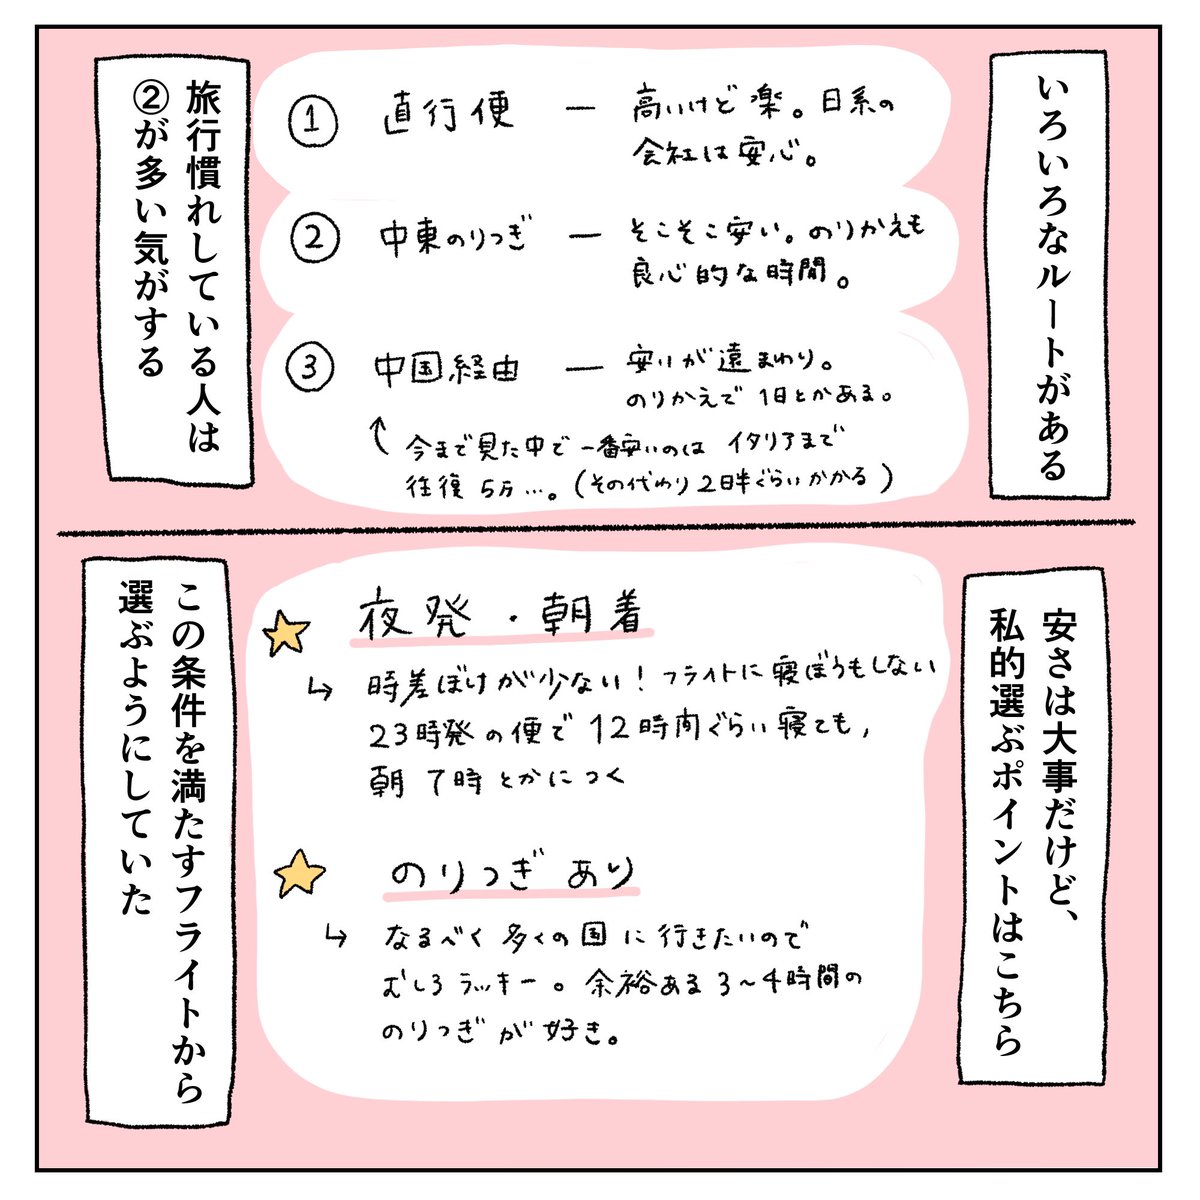 いろいろなルートがある
① 直行便 — 高いけど楽。日系の
会社は安心。
② 中東のりつぎ — そこそこ安い。のりかえも
良心的な時間。
③ 中国経由 — 安いが遠まわり。
のりかえで1日とかある。
今まで見た中で一番安いのは イタリアまで
往復5万…。(その代わり2日半ぐらいかかる)
旅行慣れしている人は
②が多い気がする
安さは大事だけど、
私的選ぶポイントはこちら
夜発・朝着
↳ 時差ぼけが少ない!フライトに寝ぼうもしない
23時発の便で12時間ぐらい寝ても,
朝7時とかにつく
のりつぎあり
↳ なるべく多くの国に行きたいので
むしろラッキー。余裕ある3〜4時間の
のりつぎが好き。
この条件を満たすフライトから
選ぶようにしていた